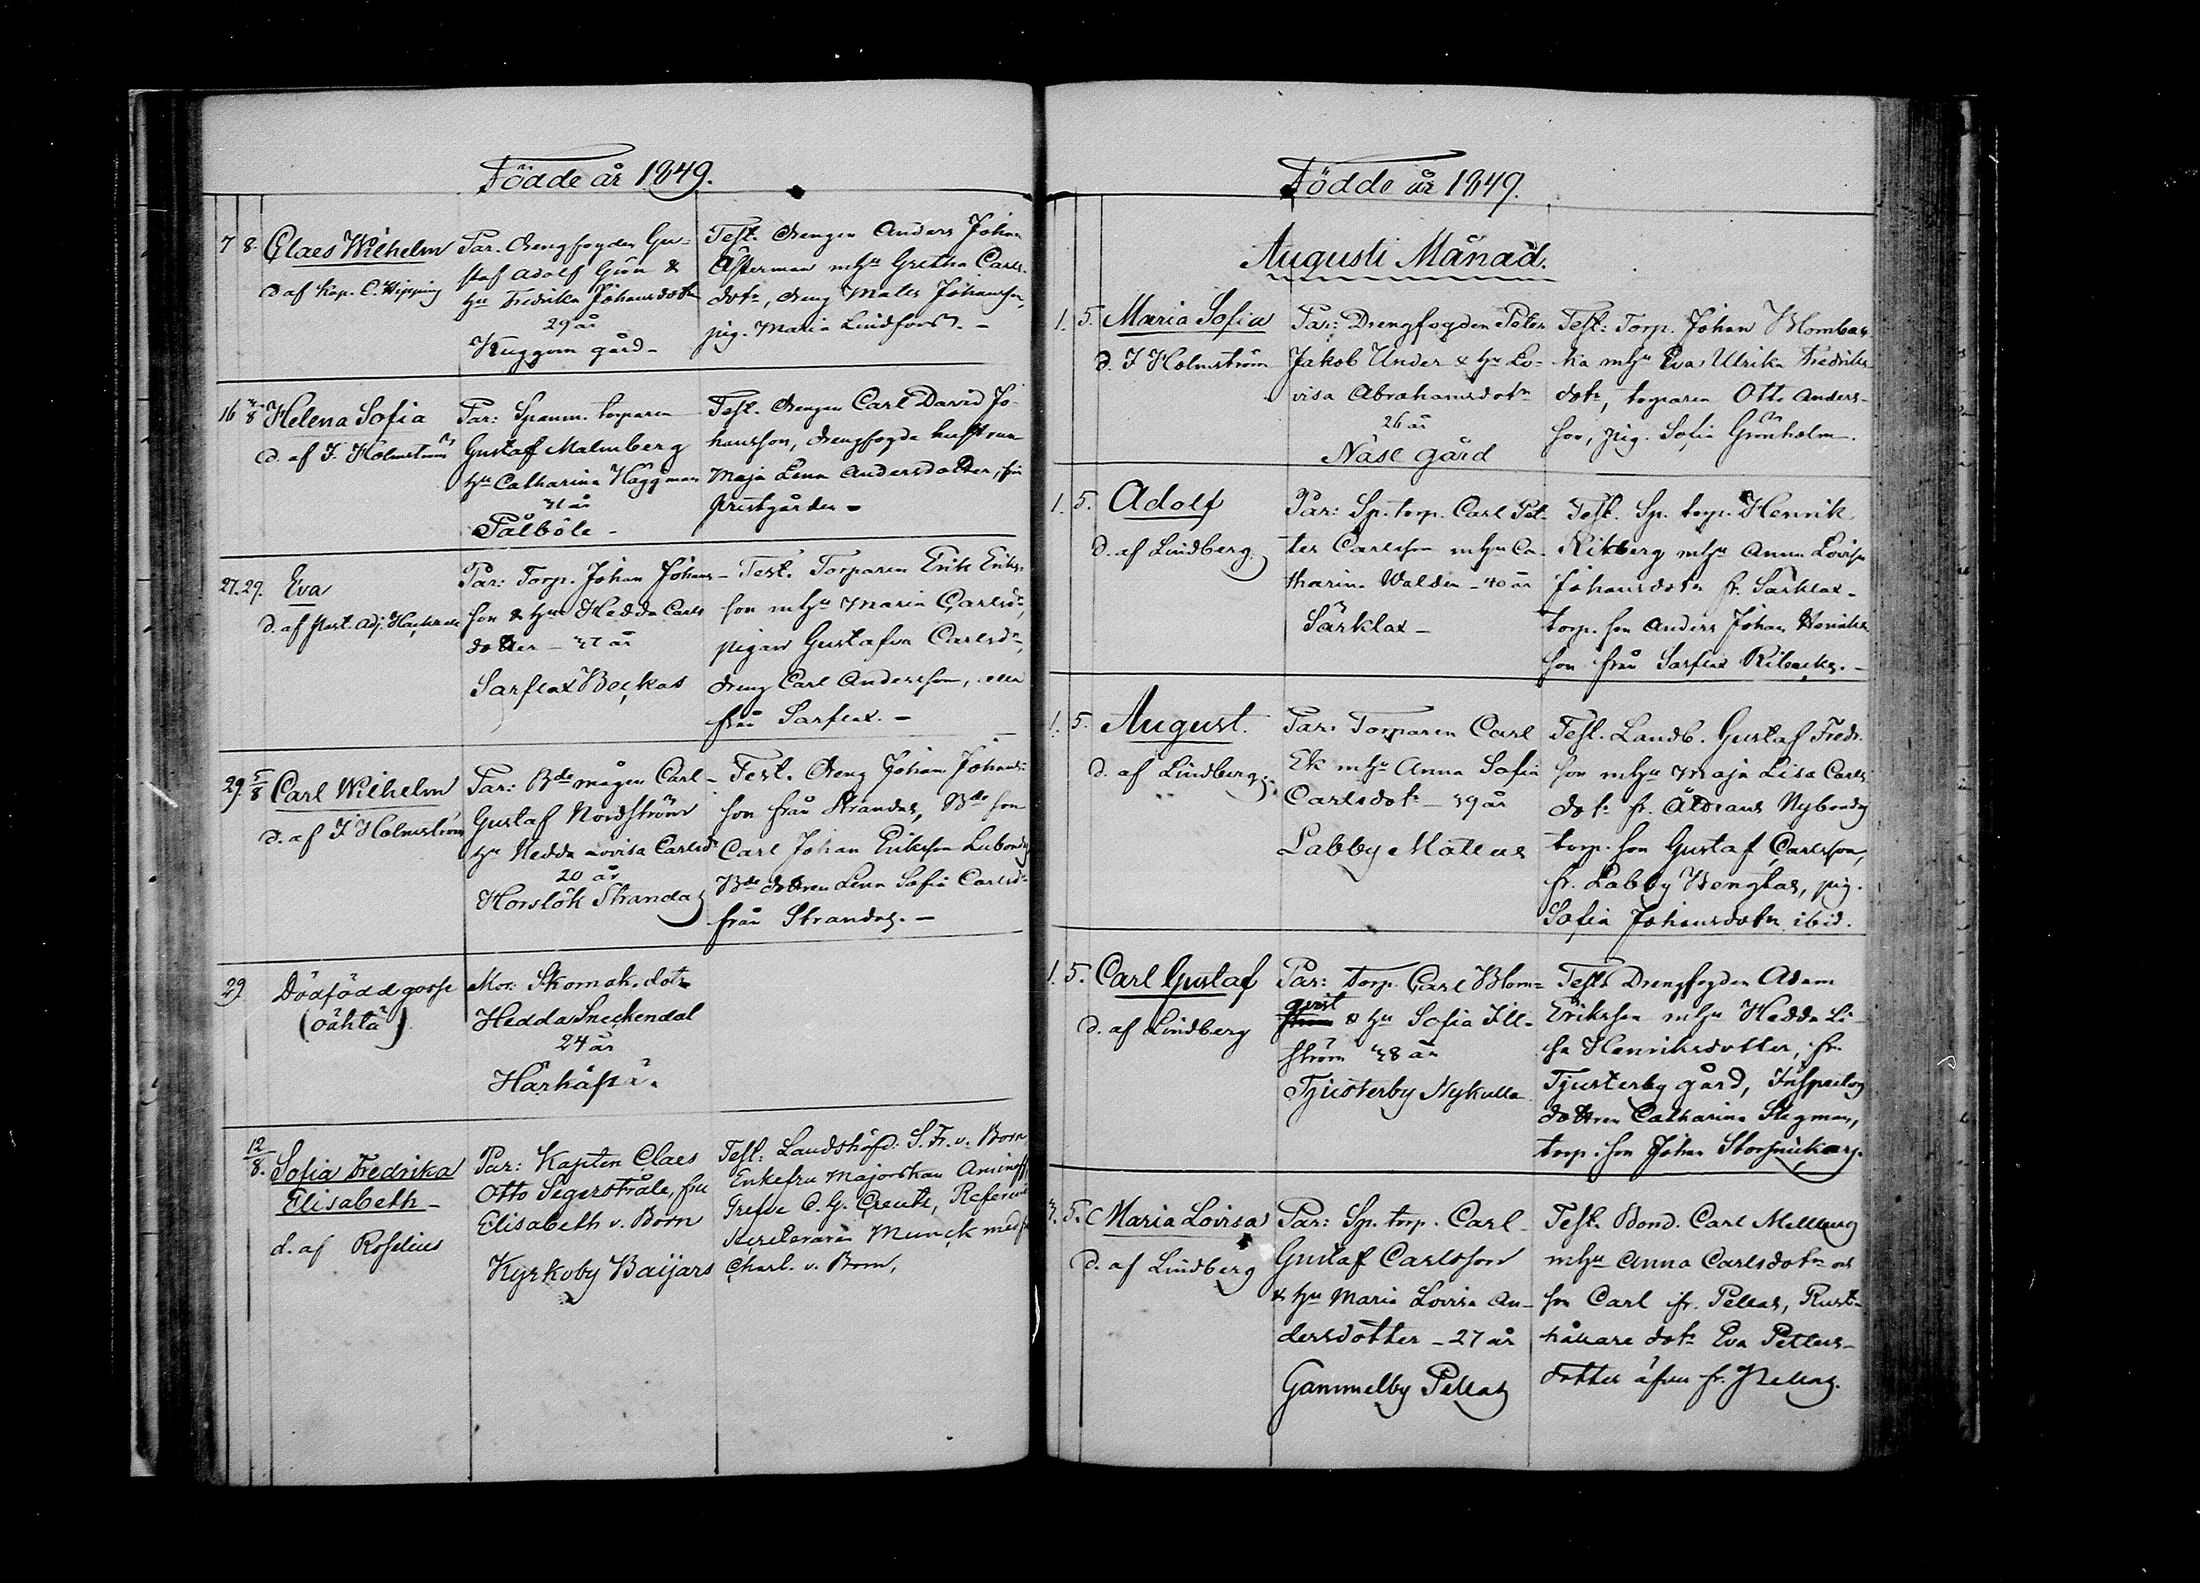 Födde år 1849.
7 8. Claes Wilhelm
d. af Kap. C. Hipping
Par. Drengfogden Gu-
staf Adolf Grön &
hu Fredrika Johansdotr
29 år
Kuggom gård-
Test. drengen Anders Johan
Åkerman mhu Gretha Carls-
dotr, dreng Mats Johansson,
pig. Maria Lindfors. -
16 Helena Sofia
d. af J. Holmström
Par: Spanm. torparen
Gustaf Malmberg
hu Catharina Häggman
år
Pålböle-
Test. drengen Carl David Jo-
hansson, drengfogde hustrun
Maja Lena Andersdotter, frn
prestgården -
27. 29. Eva
d. af Past. Adj.
Par: Torp. Johan Johans-
son & hu Hedda Carls
dotter - år
Sarflax Beckas
Test. Torparen Erik Eriks-
son mhu Maria Carlsdr,
pigan Gustafva Carlsdr,
dreng Carl Andersson, alla
från Sarflax. -
29. 5/8 Carl Wilhelm
d. af J Holmström
Par: Bde mågen Carl
Gustaf Nordström
hu Hedda Lovisa Carlsdr
20 år
Horslök Strandas
Test. dreng Johan Johans-
son från Strandas, Bde son
Carl Johan Eriksson
Bde dottren Lena Sofia Carlsdr
från Strandas. -
29. Dödfödd gosse
(oähta)
Mor: Skomak. dotr
Hedda Sneckendal
24 år
Härkäpää.
12/8. Sofia Fredrika
Elisabeth -
d. af Roselius
Par: Kapten Claes
Otto Segerstråle, fru
Elisabeth v. Born
Kyrkoby Baijars
Test: Landshöfd. S. Fr. v. Born,
Enkefru Majorskan Aminoff
Grefve C. G. Creutz, Referend
Sekreteraren Munck med fru
Charl. v. Born,
Födde år 1849.
Augusti Månad.
1. 5. Maria Sofia
d. J Holmström
Par: Drengfogden Peter
Jakob Under & hu Lo-
visa Abrahamsdotr
26 år
Näse gård
Test: Torp. Johan Blombac-
ka mhu Eva Ulrika Fredriks
dotr, torparen Otto Anders-
son, pig. Sofia Grönholm.
1. 5. Adolf
d. af Lindberg.
Par: Sp. torp. Carl Pet-
ter Carlsson mhu Ca-
tharina Walden - 40 år
Särklax -
Test. Sp. torp. Henrik
Rikberg mhu Anna Lovisa
Johansdotr fr. Särklax -
torp. son Anders Johan Henriks
son från Sarflax Ribacka. -
1. 5. August.
d. af Lindberg.
Par: Torparen Carl
Ek mhu Anna Sofia
Carlsdotr - 39 år
Labby Mattus
Test. Landb. Gustaf Fredr.
son mhu Maja Lisa Carls
dotr fr. Nybondas
torp. son Gustaf Carlsson,
fr. Labby Bengtas, pig.
Sofia Johansdotr ibid.
1. 5. Carl Gustaf
d. af Lindberg
Par: torp. Carl Blom-
qvist & hu Sofia Ill-
ström 38 år
Tjusterby Nykulla
Test: Drengfogden Adam
Eriksson mhu Hedda Li-
sa Henriksdotter, fr.
Tjusterby gård, Inspectors
dottren Catharina Stegman,
torp. son Johan
3. 5. Maria Lovisa
d. af Lindberg
Par: Sp. torp. Carl
Gustaf Carlsson
& hu Maria Lovisa An-
dersdotter - 27 år
Gammelby Pellas
Test. Bond. Carl Mellberg
mhu Anna Carlsdotr och
son Carl fr. Pellas, Rust-
hållare dotr Eva Petters-
dotter äfven fr. Pellas.